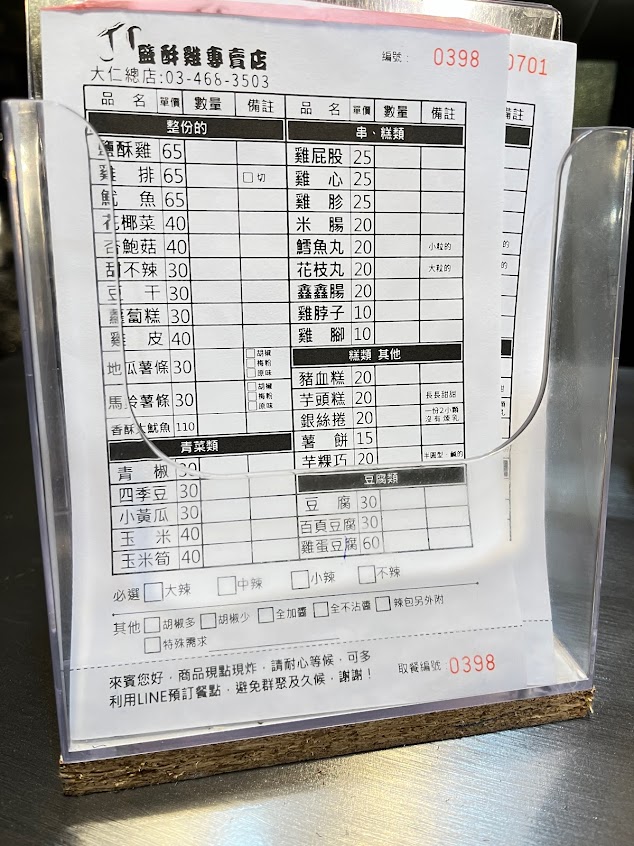 鹽酥雞專賣店
編號： 0398
0701
大仁總店:03-468-3503
品 名 單價 數量 備註
整份的
鹽酥雞 65
雞 排 65 □切
魷 魚 65
花椰菜 40
杏鮑菇 40
甜不辣 30
豆 干 30
蘿蔔糕 30
雞 皮 40
地瓜薯條 30 □胡椒 □梅粉 □原味
馬鈴薯條 30 □胡椒 □梅粉 □原味
香酥大魷魚 110
青菜類
青 椒 30
四季豆 30
小黃瓜 30
玉 米 40
玉米筍 40
品 名 單價 數量 備註
串、糕類
雞屁股 25
雞 心 25
雞 胗 25
米 腸 20
鱈魚丸 20 小粒的
花枝丸 20 大粒的
鑫鑫腸 20
雞脖子 10
雞 腳 10
糕類 其他
豬血糕 20
芋頭糕 20 長長甜甜
銀絲捲 20 一份2小顆 沒有煉乳
薯 餅 15
芋粿巧 20 半圓型，鹹的
豆腐類
豆 腐 30
百頁豆腐 30
雞蛋豆腐 60
備註
必選 □大辣 □中辣 □小辣 □不辣
其他 □胡椒多 □胡椒少 □全加醬 □全不沾醬 □辣包另外附
□特殊需求
來賓您好，商品現點現炸，請耐心等候，可多
利用LINE預訂餐點，避免群聚及久候，謝謝！
取餐編號：0398